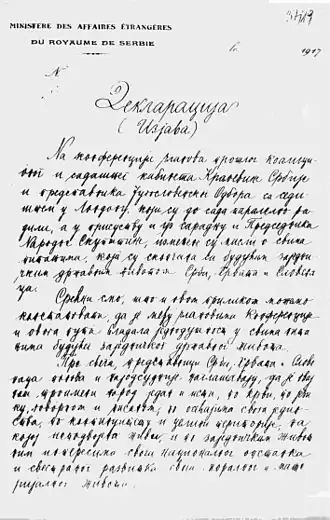 MINISTÈRE DES AFFAIRES ÉTRANGÈRES
DU ROYAUME DE SERBIE
1917
№
Декларација
(Изјава)
На конференцији чланова прошлог коалици-
оног и садашњег кабинета Краљевине Србије
и представника Југословенског Одбора са седи-
штем у Лондону, који су до сада паралелно ра-
дили, а у присуству и Председника
Народне Скупштине, измењене су мисли о свима
питањима, која су скопчана са будућим заједни-
чким државним животом Срба, Хрвата и Словена-
ца.
Срећни смо, што и овом приликом можемо
констатовати, да је међу члановима Конференције
и овога пута владала једнодушност у свима пита-
њима будућег заједничког државног живота.
Пре свега, представници Срба, Хрвата и Слове-
наца понова и најодсудније наглашавају, да је овај
наш троимени народ један и исти, по крви, по јези-
ку, говорном и писаном, по осећајима свога јединс-
тва, по континуитету и целини територије, на
којој неподвојено живи, и по заједничким живот-
ним интересима свога националног опстанка
и свестраног развитка свога моралног и мате-
ријалног живота.